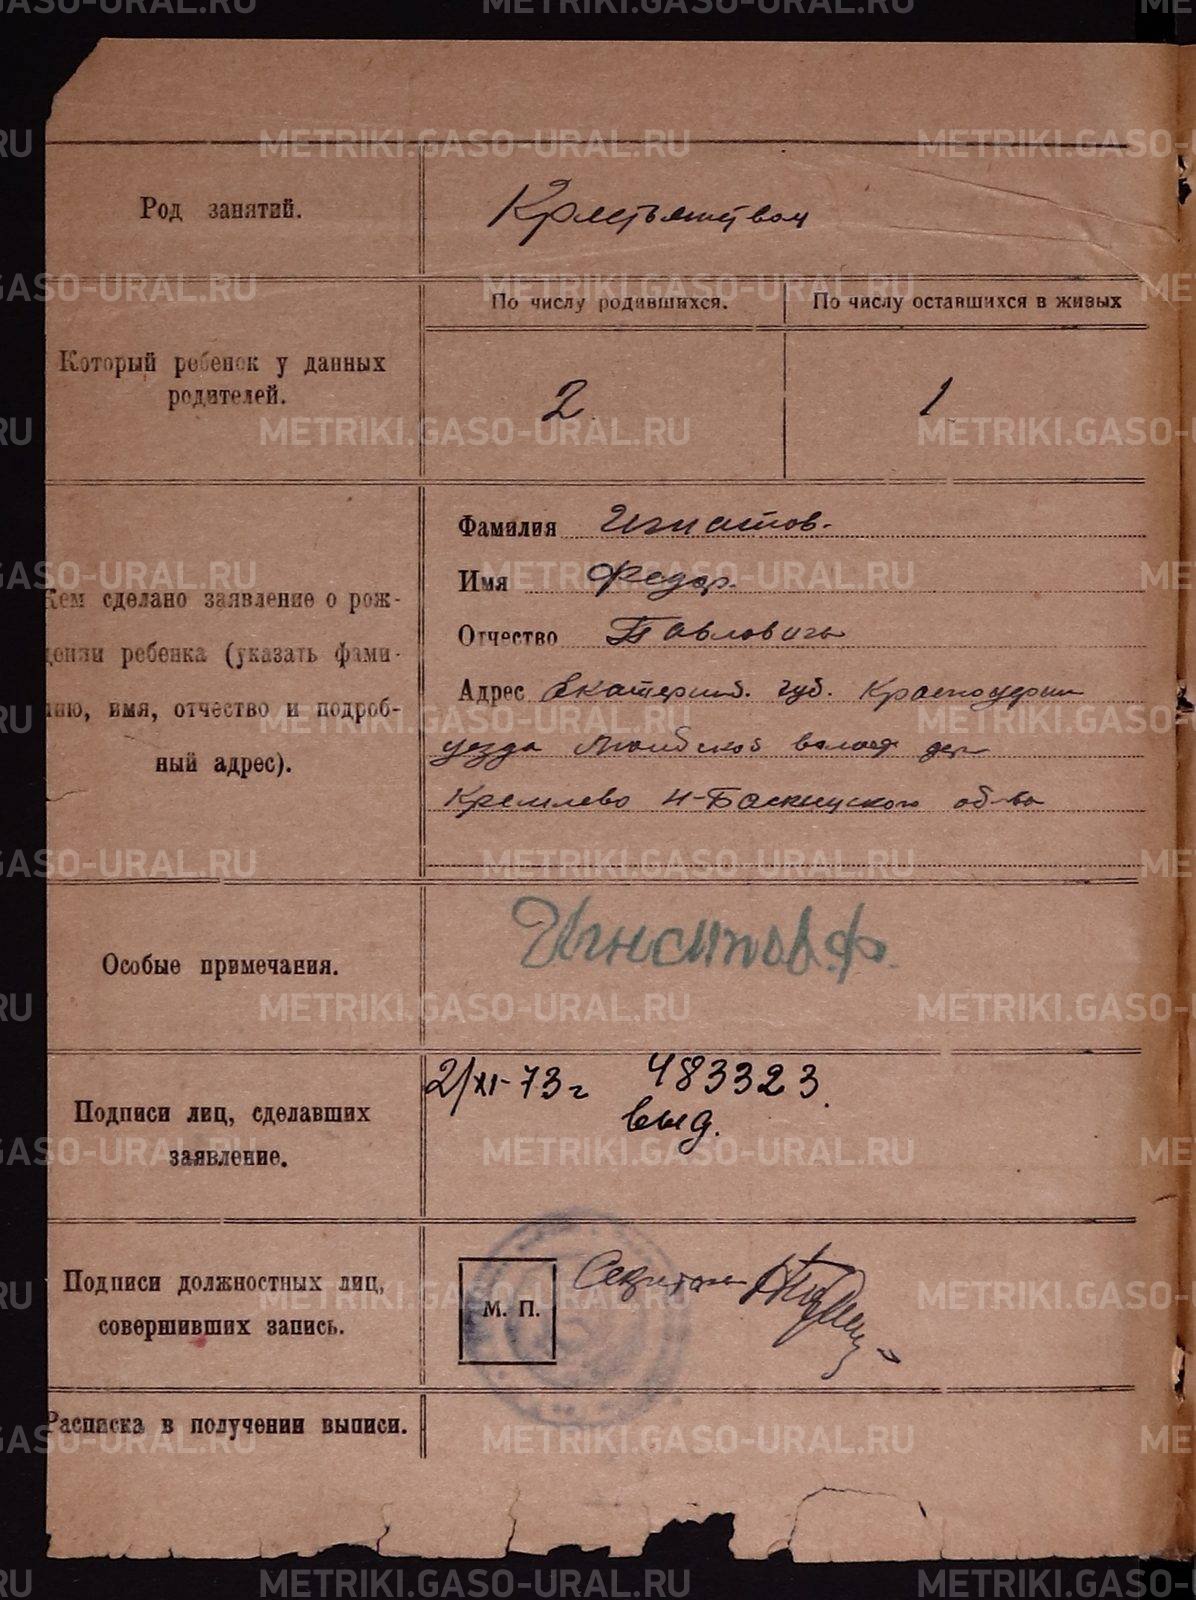 METRIKI.GASO-URAL.RU
Род занятий.
Крестьянством
Который ребенок у данных
родителей.
По числу родившихся.
По числу оставшихся в живых
2
1
Кем сделано заявление о рож-
дении ребенка (указать фами-
лию, имя, отчество и подроб-
ный адрес).
Фамилия Игнатов.
Имя Федор.
Отчество Павловичъ
Адрес Екатеринб. губ. Красноуфим
уезда волост дер
Кремлево об-ва
Особые примечания.
Игнатов.Ф.
Подписи лиц, сделавших
заявление.
2/XI-73 г 483323.
выд.
Подписи должностных лиц,
совершивших запись.
М. П.
Секретарь
Расписка в получении выписи.